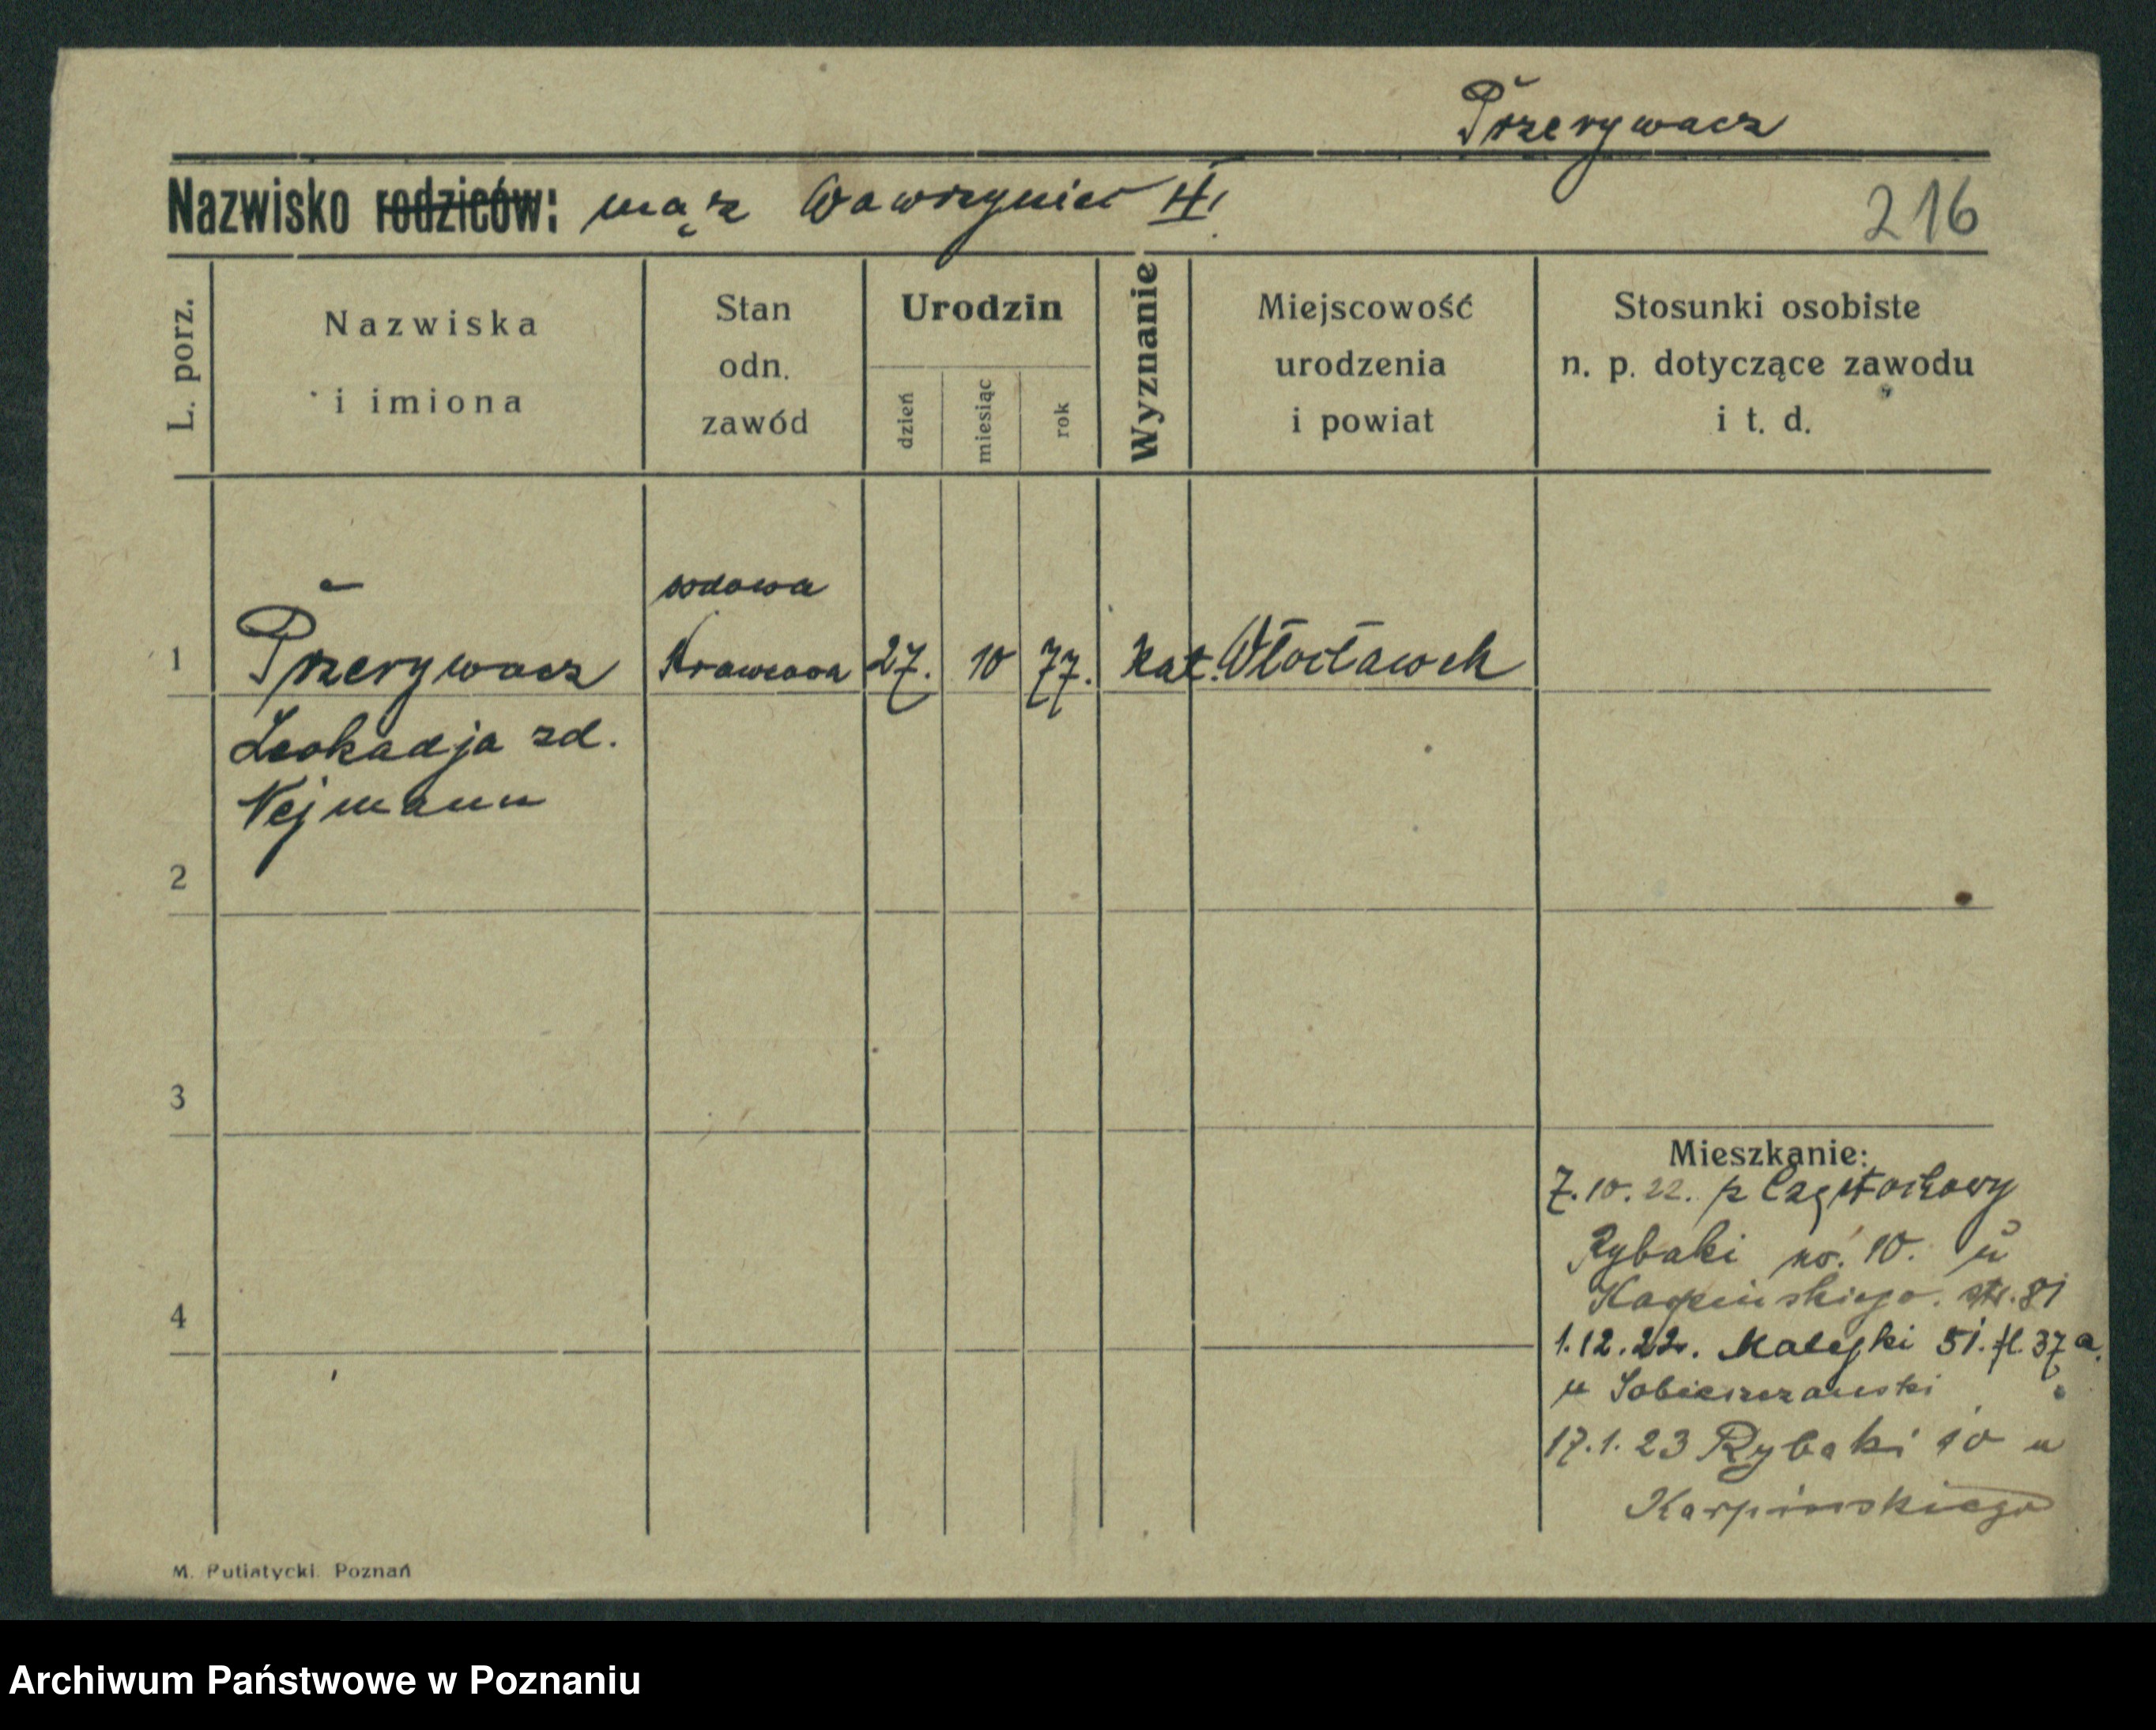 Przerywacz
Nazwisko rodziców: mąż Wawrzyniec
216
L. porz.
Nazwiska
i imiona
Stan
odn.
zawód
Urodzin
dzień
miesiąc
rok
Wyznanie
Miejscowość
urodzenia
i powiat
Stosunki osobiste
n. p. dotyczące zawodu
i t. d.
wdowa
1 Przerywacz Krawcowa 27. 10 77. Kat. Włocławek
Leokadja zd.
Nejmann
2
3
Mieszkanie:
7.10.22. z Częstochowy
Rybaki no. 10. u
Karpińskiego. str. 81
4
1.12.22. Małejki 51. fl. 37 a.
u Sobieszczanski
17.1.23 Rybaki 10 u
Karpinskiego
M. Putiatycki. Poznań
Archiwum Państwowe w Poznaniu